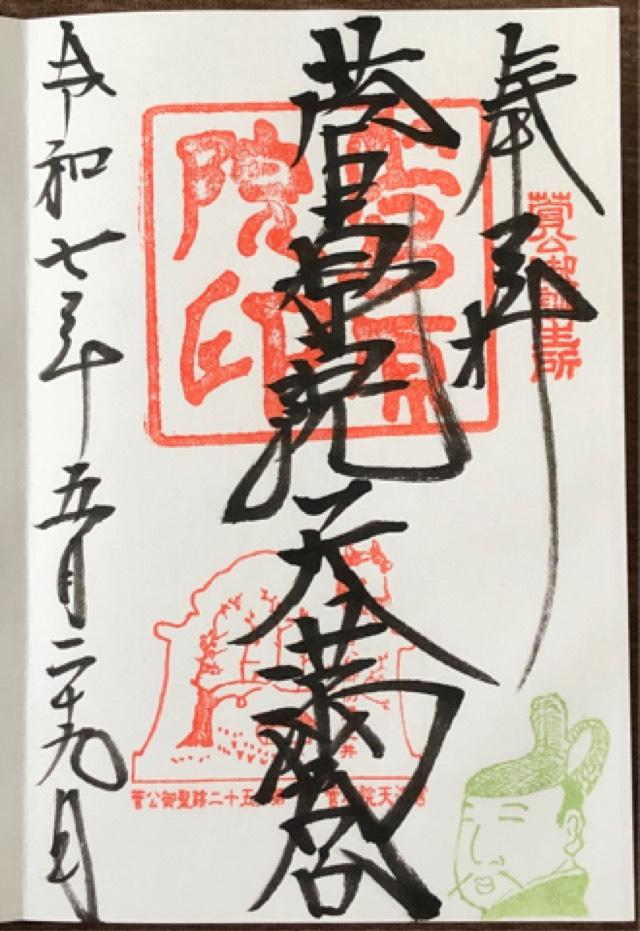 奉拝
菅公御誕生所
菅原院天満宮
菅原院印
菅公御聖跡二十五
菅原院天満宮
令和七年五月二十九日